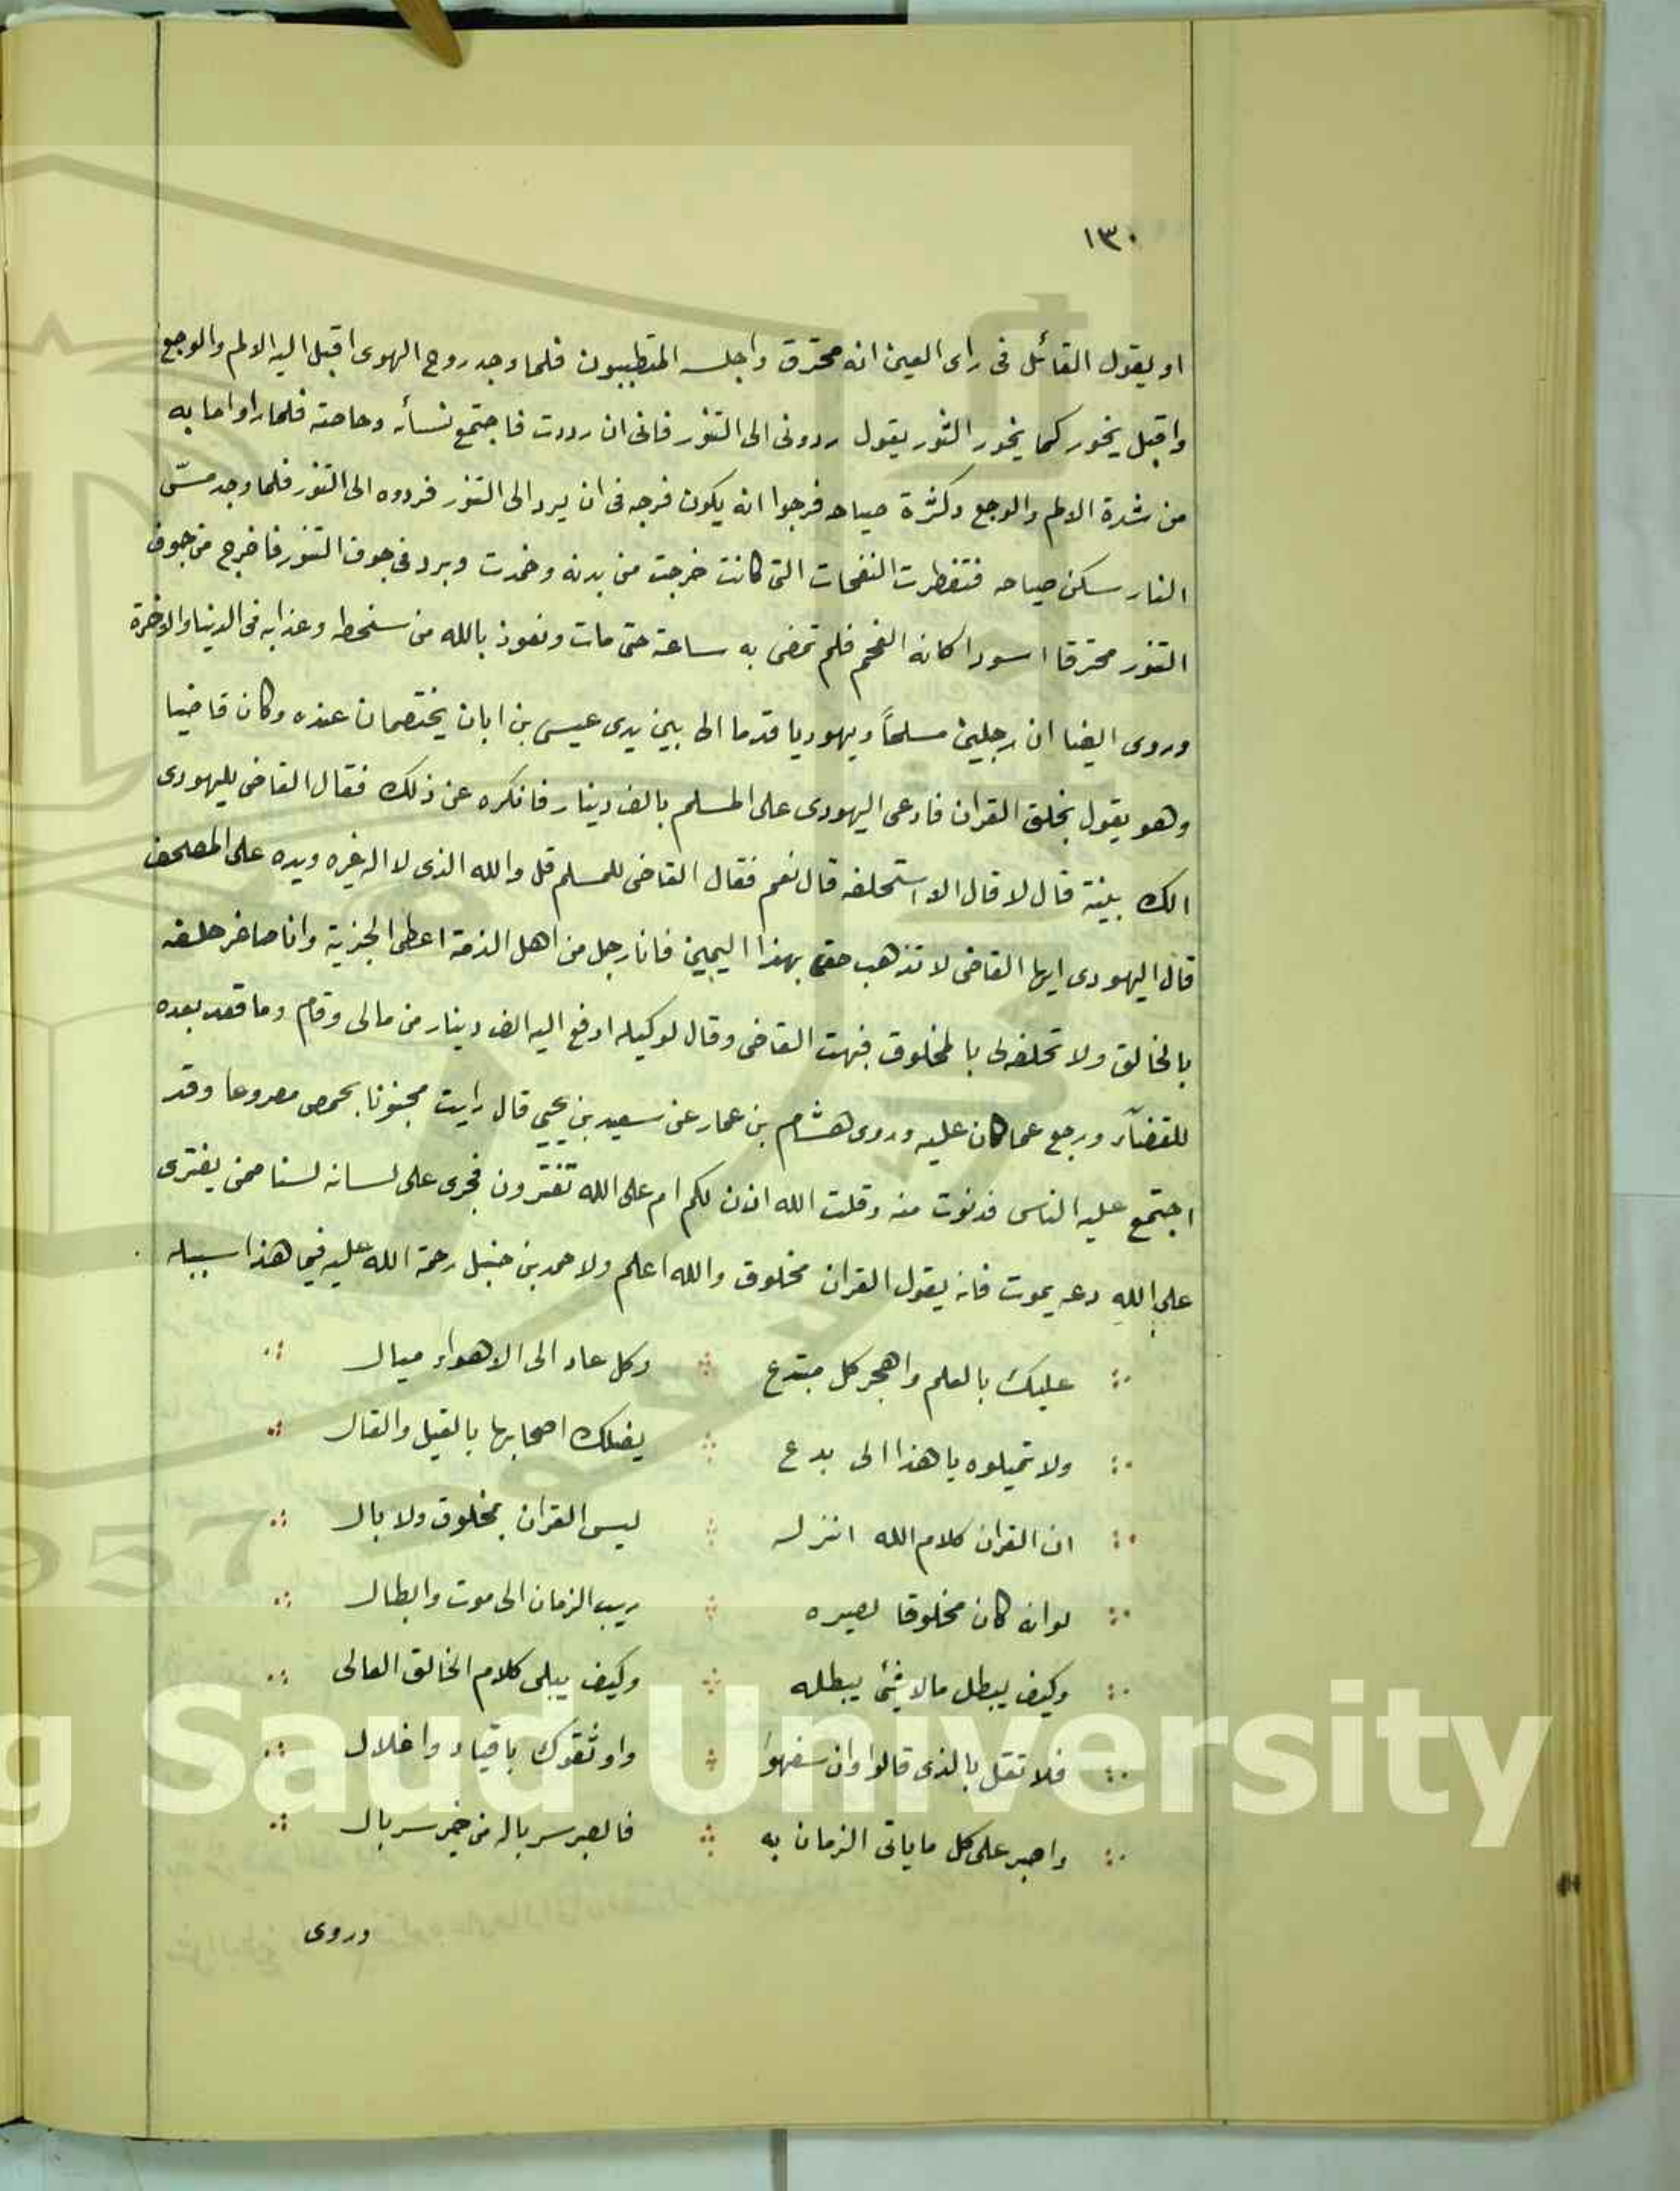 ١٣٠
او يقول القائل فى راى العين انه محترق واجلسه المتطببون فلما وجد روح الهوى اقبل اليه الالم والوجع
واقبل يخور كما يخور الثور يقول ردونى الى التنور فانى ان رددت فاجتمع نسأه وخاصته فلما راوا ما به
من شدة الالم والوجع وكثرة صياحه فرجوا انه يكون فرجه فى ان يرد الى التنور فردوه الى التنور فلما وجد مسّ
النار سكن صياحه فتفطرت النفخات التى كانت خرجت من بدنه وخمدت وبرد فى جوف التنور فاخرج من جوف
التنور محترقا اسودا كانه الفحم فلم تمضى به ساعة حتى مات ونعوذ بالله من سخطه وعذابه فى الدنيا والاخرة
وروى ايضا ان رجلين مسلماً ويهوديا قدما الى بين يدى عيسى بن ابان يختصمان عنده وكان قاضيا
وهو يقول بخلق القران فادعى اليهودى على المسلم بالف دينار فانكره عن ذلك فقال القاضى لليهودى
الك بينة قال لا قال الا استحلفه قال نعم فقال القاضى للمسلم قل والله الذى لا اله غيره ويده على المصحف
قال اليهودى ايها القاضى لا تذهب حقى بهذا اليمين فانا رجل من اهل الذمة اعطى الجزية وانا صاغر حلفه
بالخالق ولا تحلفه لى بالمخلوق فبهت القاضى وقال لوكيله ادفع اليه الف دينار من مالى وقام وما قعد بعده
للقضآء ورجع عما كان عليه وروى هشام بن عمار عن سعيد بن يحيى قال رايت مجنونا بحمص مصروعا وقد
اجتمع عليه الناس فدنوت منه وقلت الله اذن لكم ام على الله تفترون فجرى على لسانه لسنا ممن يفترى
على الله دعه يموت فانه يقول القران مخلوق والله اعلم ولاحمد بن حنبل رحمة الله عليه فيما هذا سبيله
عليك بالعلم واهجر كل مبتدع وكل عاد الى الاهواء ميال
ولا تميلوه يا هذا الى بدع يضلك اصحابها بالقيل والقال
ان القران كلام الله انزله ليس القران بمخلوق ولا بال
لو انه كان مخلوقا لصيره ريب الزمان الى موت وابطال
وكيف يبطل مالا شئ يبطله وكيف يبلى كلام الخالق العالى
فلا تقل بالذى قالوا وان سفهوا واوثقوك باقياد واغلال
واصبر على كل ما ياتى الزمان به فالصبر سرباله من خير سربال
وروى
King Saud University
1957